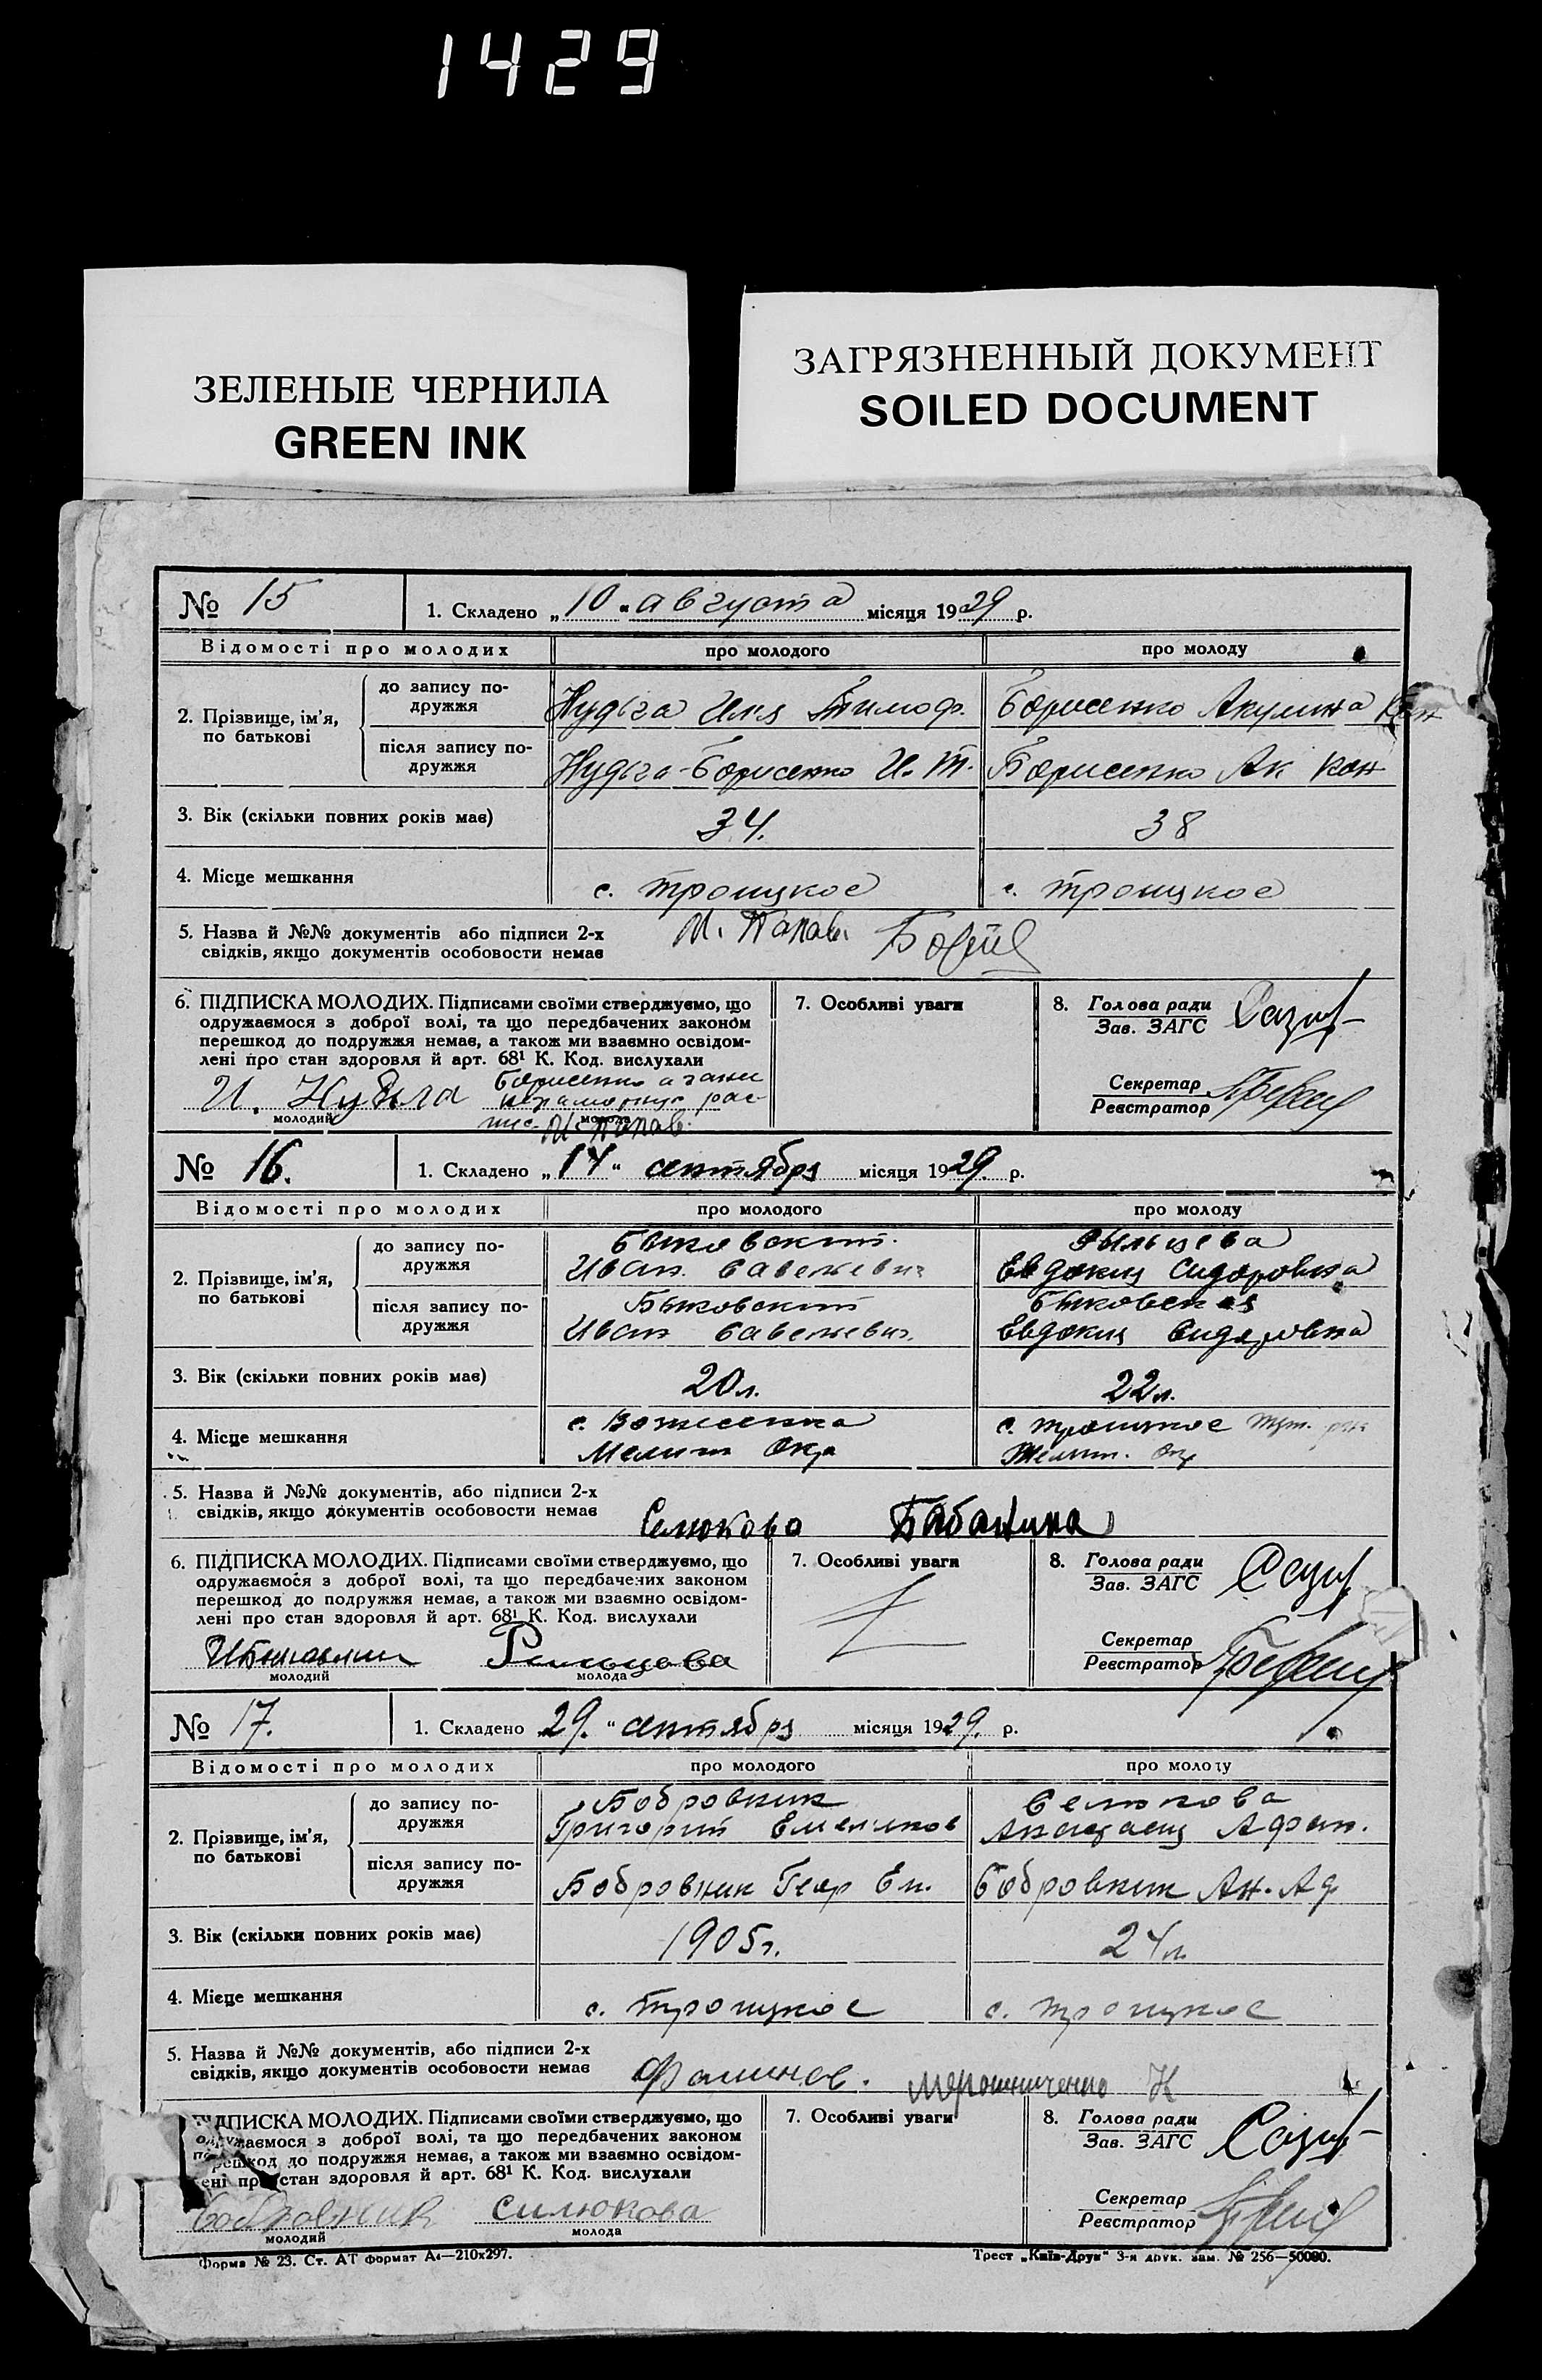 1429
ЗЕЛЕНЫЕ ЧЕРНИЛА
GREEN INK
ЗАГРЯЗНЕННЫЙ ДОКУМЕНТ
SOILED DOCUMENT
№ 15 1. Складено „10“ августа місяця 1929 р.
Відомості про молодих про молодого про молоду
2. Прізвище, ім'я, по батькові
до запису по-
дружжя
Нудьга Илья Тимоф. Борисенко Акулина Кон
після запису по-
дружжя
Нудьга-Борисенко И. Т. Борисенко Ак Кон
3. Вік (скільки повних років має) 34. 38
4. Місце мешкання с. Троицкое с. Троицкое
5. Назва й №№ документів або підписи 2-х
свідків, якщо документів особовости немає
6. ПІДПИСКА МОЛОДИХ. Підписами своїми стверджуємо, що
одружаємося з доброї волі, та що передбачених законом
перешкод до подружжя немає, а також ми взаємно освідом-
лені про стан здоровля й арт. 68¹ К. Код. вислухали
И. Нудьга Борисенко
молодий молода
7. Особливі уваги
8. Голова ради
Зав. ЗАГС
Секретар
Реєстратор
№ 16. 1. Складено „14“ сентября місяця 1929. р.
Відомості про молодих про молодого про молоду
2. Прізвище, ім'я,
по батькові
до запису по-
дружжя
Быковский.
Иван Савельевич
Рыльцева
Евдокия Сидоровна
після запису по-
дружжя
Быковский
Иван Савельевич
Быковская
Евдокия Сидоровна
3. Вік (скільки повних років має) 20 л. 22 л.
4. Місце мешкання
с. Вознесенка
Мелит Окр
с. Троицкое
Мелит. Окр
5. Назва й №№ документів, або підписи 2-х
свідків, якщо документів особовости немає
Селюкова Бабанина
6. ПІДПИСКА МОЛОДИХ. Підписами своїми стверджуємо, що
одружаємося з доброї волі, та що передбачених законом
перешкод до подружжя немає, а також ми взаємно освідом-
лені про стан здоровля й арт. 68¹ К. Код. вислухали
Рильцева
молодий молода
7. Особливі уваги
8. Голова ради
Зав. ЗАГС
Секретар
Реєстратор
№ 17. 1. Складено 29.“ сентября місяця 1929. р.
Відомості про молодих про молодого про молоду
2. Прізвище, ім'я,
по батькові
до запису по-
дружжя
Бобровник
Григорий Емельянов
Селюкова
Анастасия Афан.
після запису по-
дружжя
Бобровник Геор Ем. Бобровник Ан. Аф
3. Вік (скільки повних років має) 1905 г. 24 л.
4. Місце мешкання с. Троицкое с. Троицкое
5. Назва й №№ документів, або підписи 2-х
свідків, якщо документів особовости немає
Фоминов. Мерошниченко Н
ПІДПИСКА МОЛОДИХ. Підписами своїми стверджуємо, що
одружаємося з доброї волі, та що передбачених законом
перешкод до подружжя немає, а також ми взаємно освідом-
ені про стан здоровля й арт. 68¹ К. Код. вислухали
Бобровник Силюкова
молодий молода
7. Особливі уваги
8. Голова ради
Зав. ЗАГС
Секретар
Реєстратор
Форма № 23. Ст. АТ формат А4—210x297.
Трест „Київ-Друк“ 3-я друк. зам. № 256—50000.